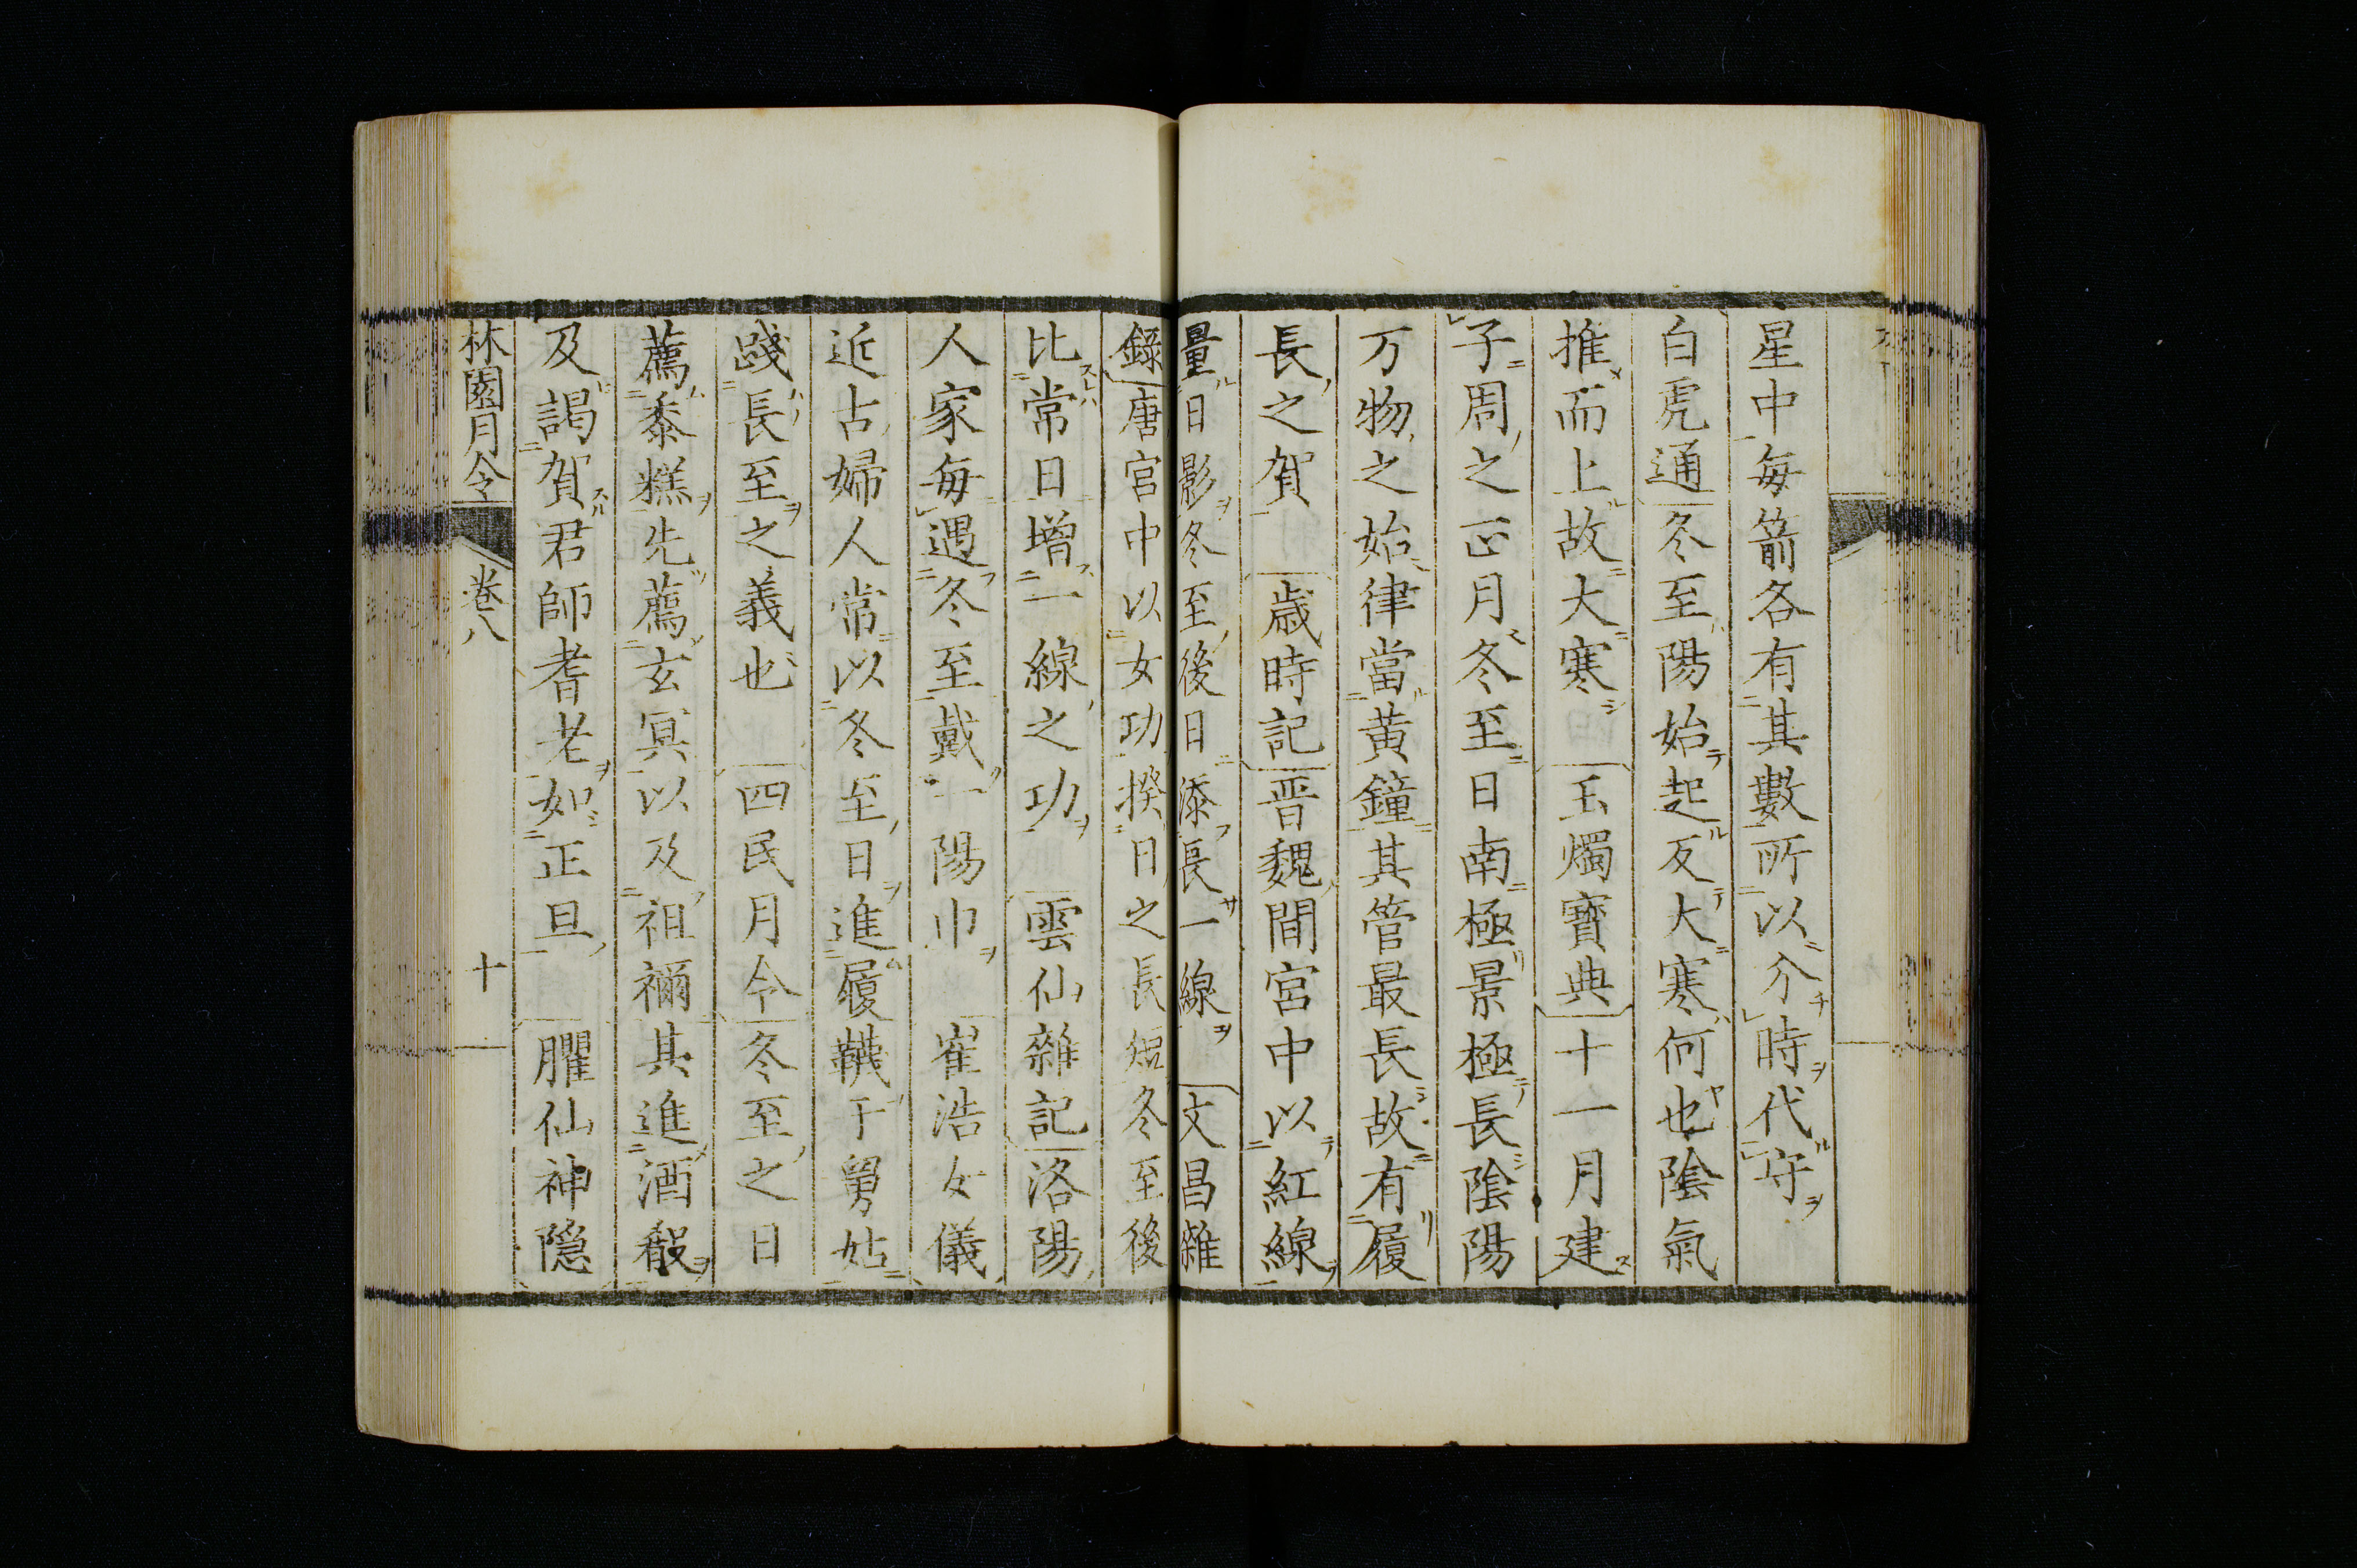 星中毎箭各有其數所以分時代守
白虎通冬至陽始起反大寒何也陰氣
推而上故大寒　玉燭寳典十一月建
子周之正月冬至日南極景極長陰陽
万物之始律當黄鐘其管最長故有履
長之賀　歳時記晋魏間宮中以紅線
量日影冬至後日添長一線　文昌雜
録唐宮中以女功揆日之長短冬至後
比常日増一線之功　雲仙雜記洛陽
人家毎遇冬至戴一陽巾　崔浩女儀
近古婦人常以冬至日進履韈于舅姑
踐長至之義也　四民月令冬至之日
薦黍糕先薦玄冥以及祖禰其進酒殽
及謁賀君師耆老如正旦　臞仙神隠
林園月令　巻八　十